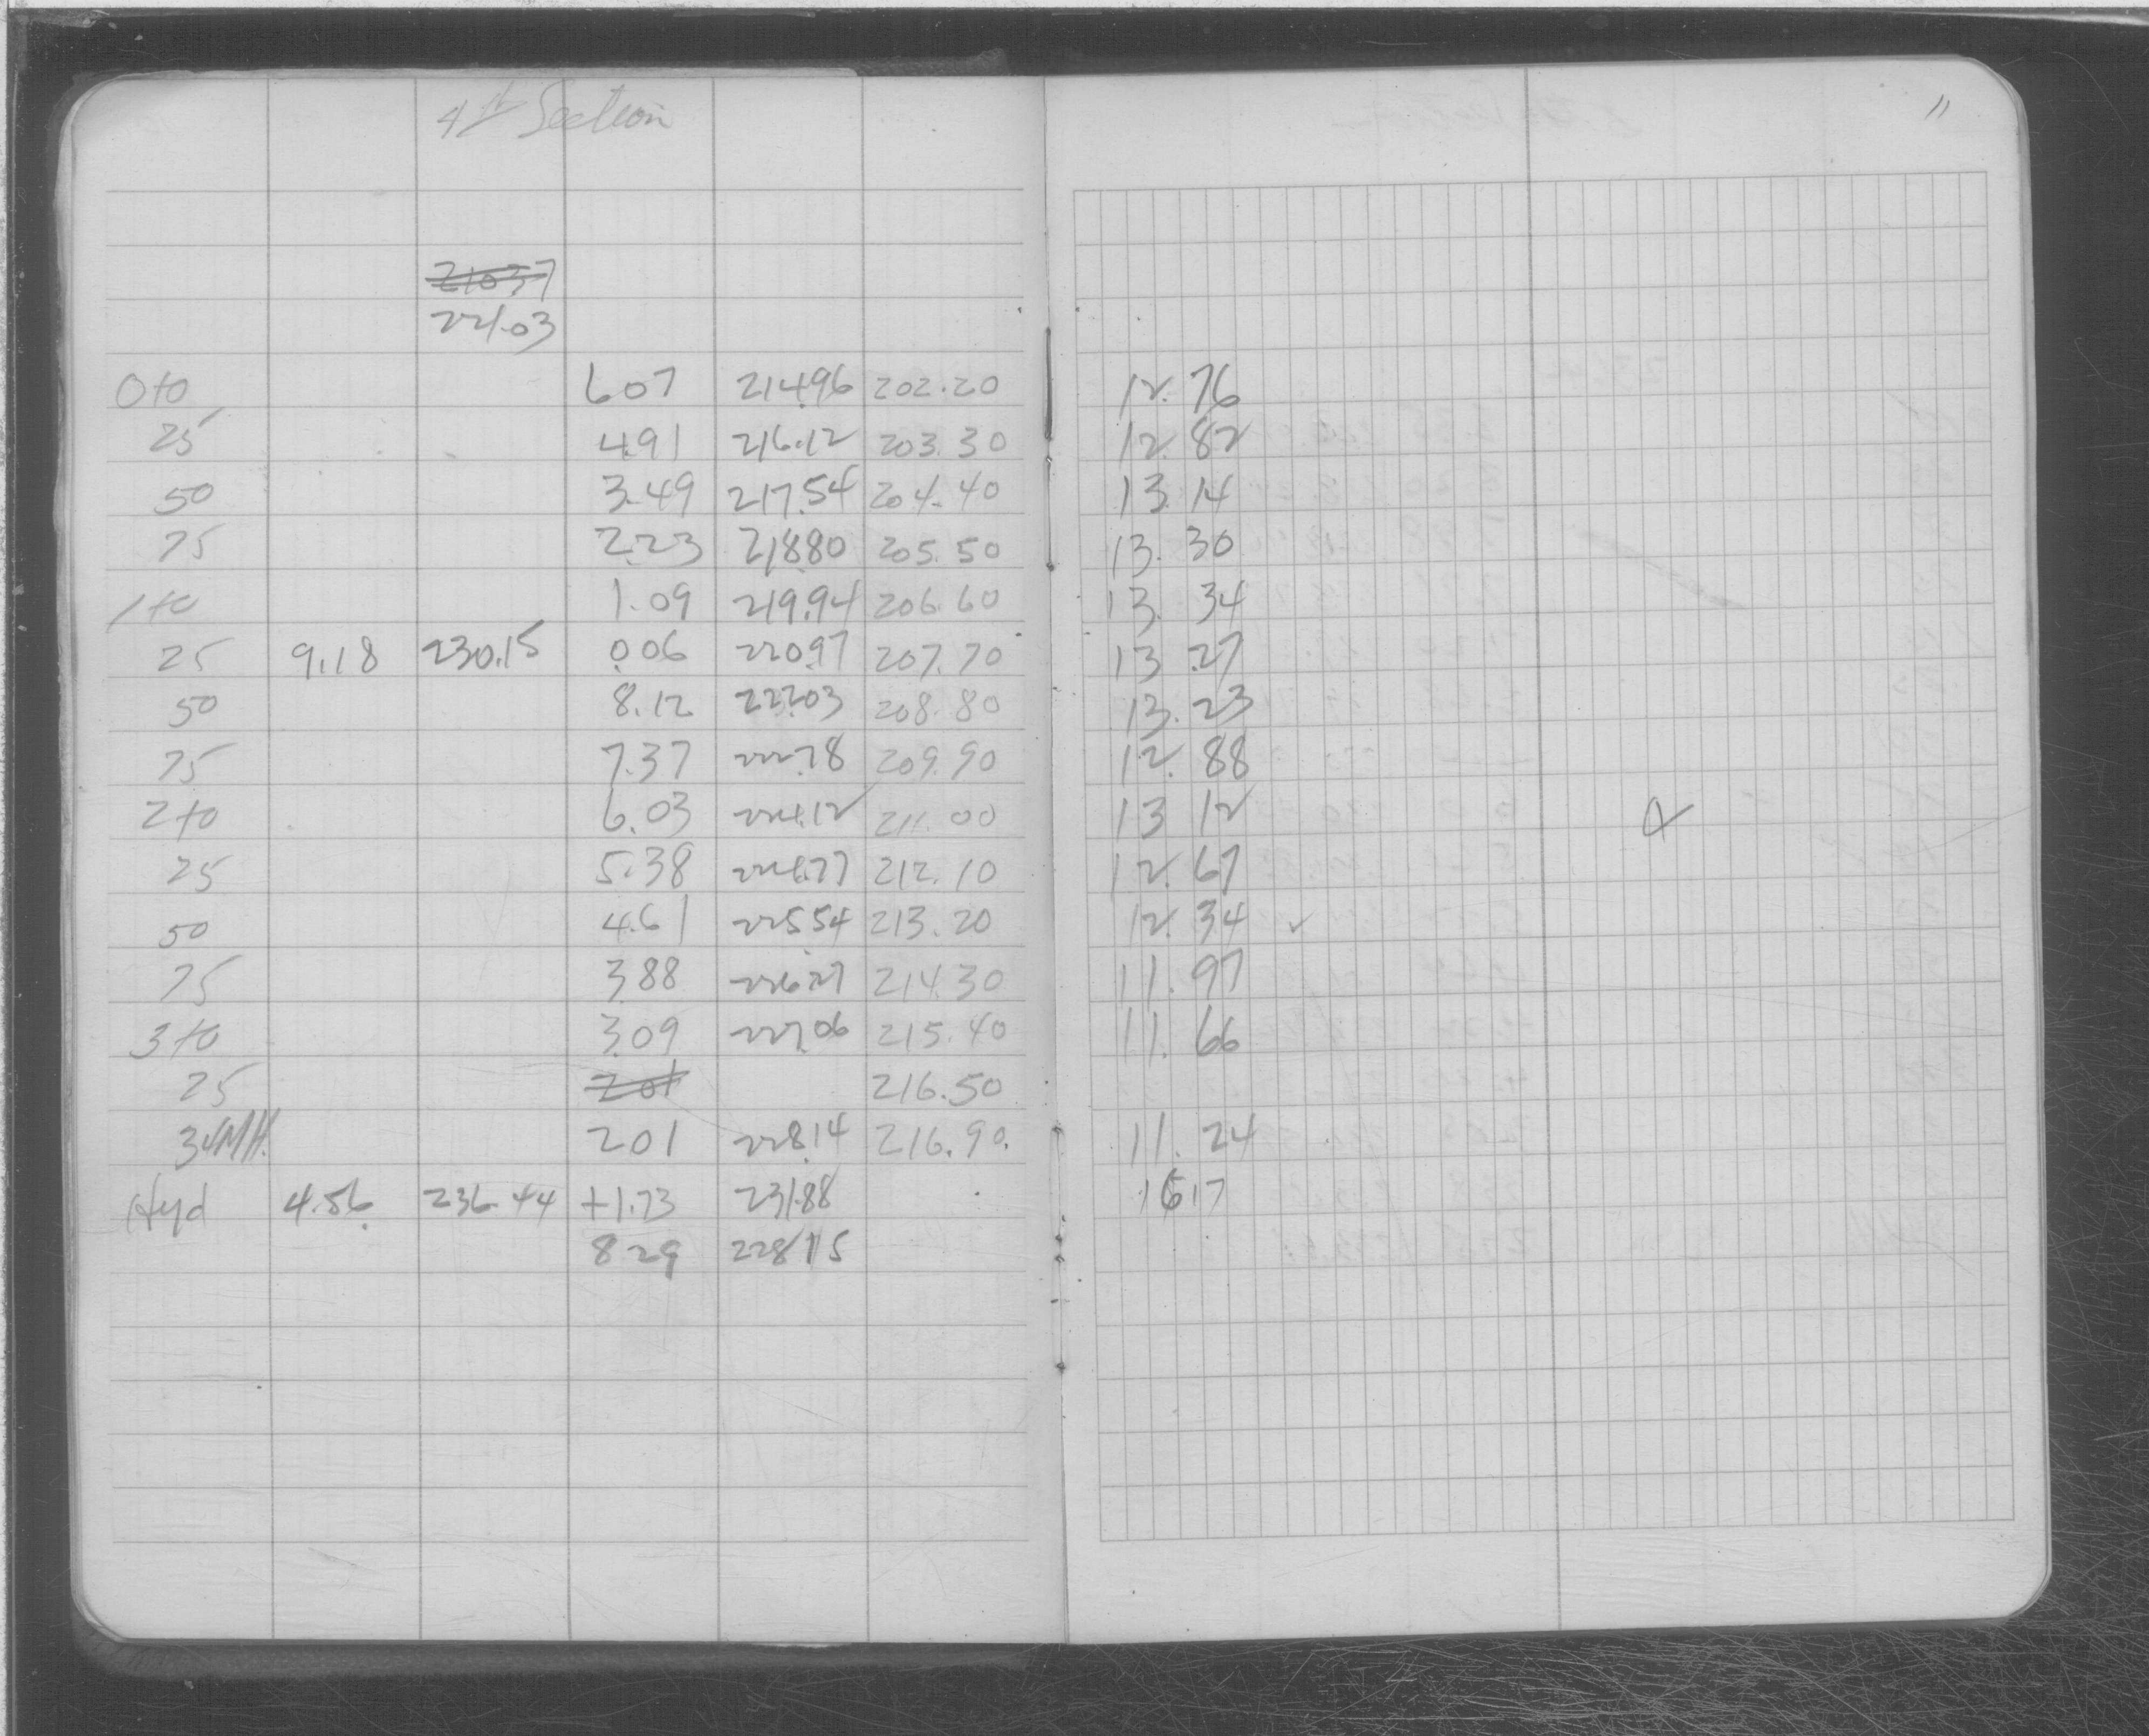 4th Section
11
21037
221.03
0+0 6.07 214.96 202.20 12.76
25 4.91 216.12 203.30 12.82
50 3.49 217.54 204.40 13.14
75 2.23 218.80 205.50 13.30
1+0 1.09 219.94 206.60 13.34
25 9.18 230.15 0.06 220.97 207.70 13.27
50 8.12 222.03 208.80 13.23
75 7.37 222.78 209.90 12.88
2+0 6.03 224.12 211.00 13 12
25 5.38 224.77 212.10 12.67
50 4.61 225.54 213.20 12.34 ✓
75 3.88 226.27 214.30 11.97
3+0 3.09 227.06 215.40 11.66
25 2.01 216.50
34MH. 2.01 228.14 216.90. 11.24
Hyd 4.56 236.44 +1.73 231.88 1617
8 29 228 15